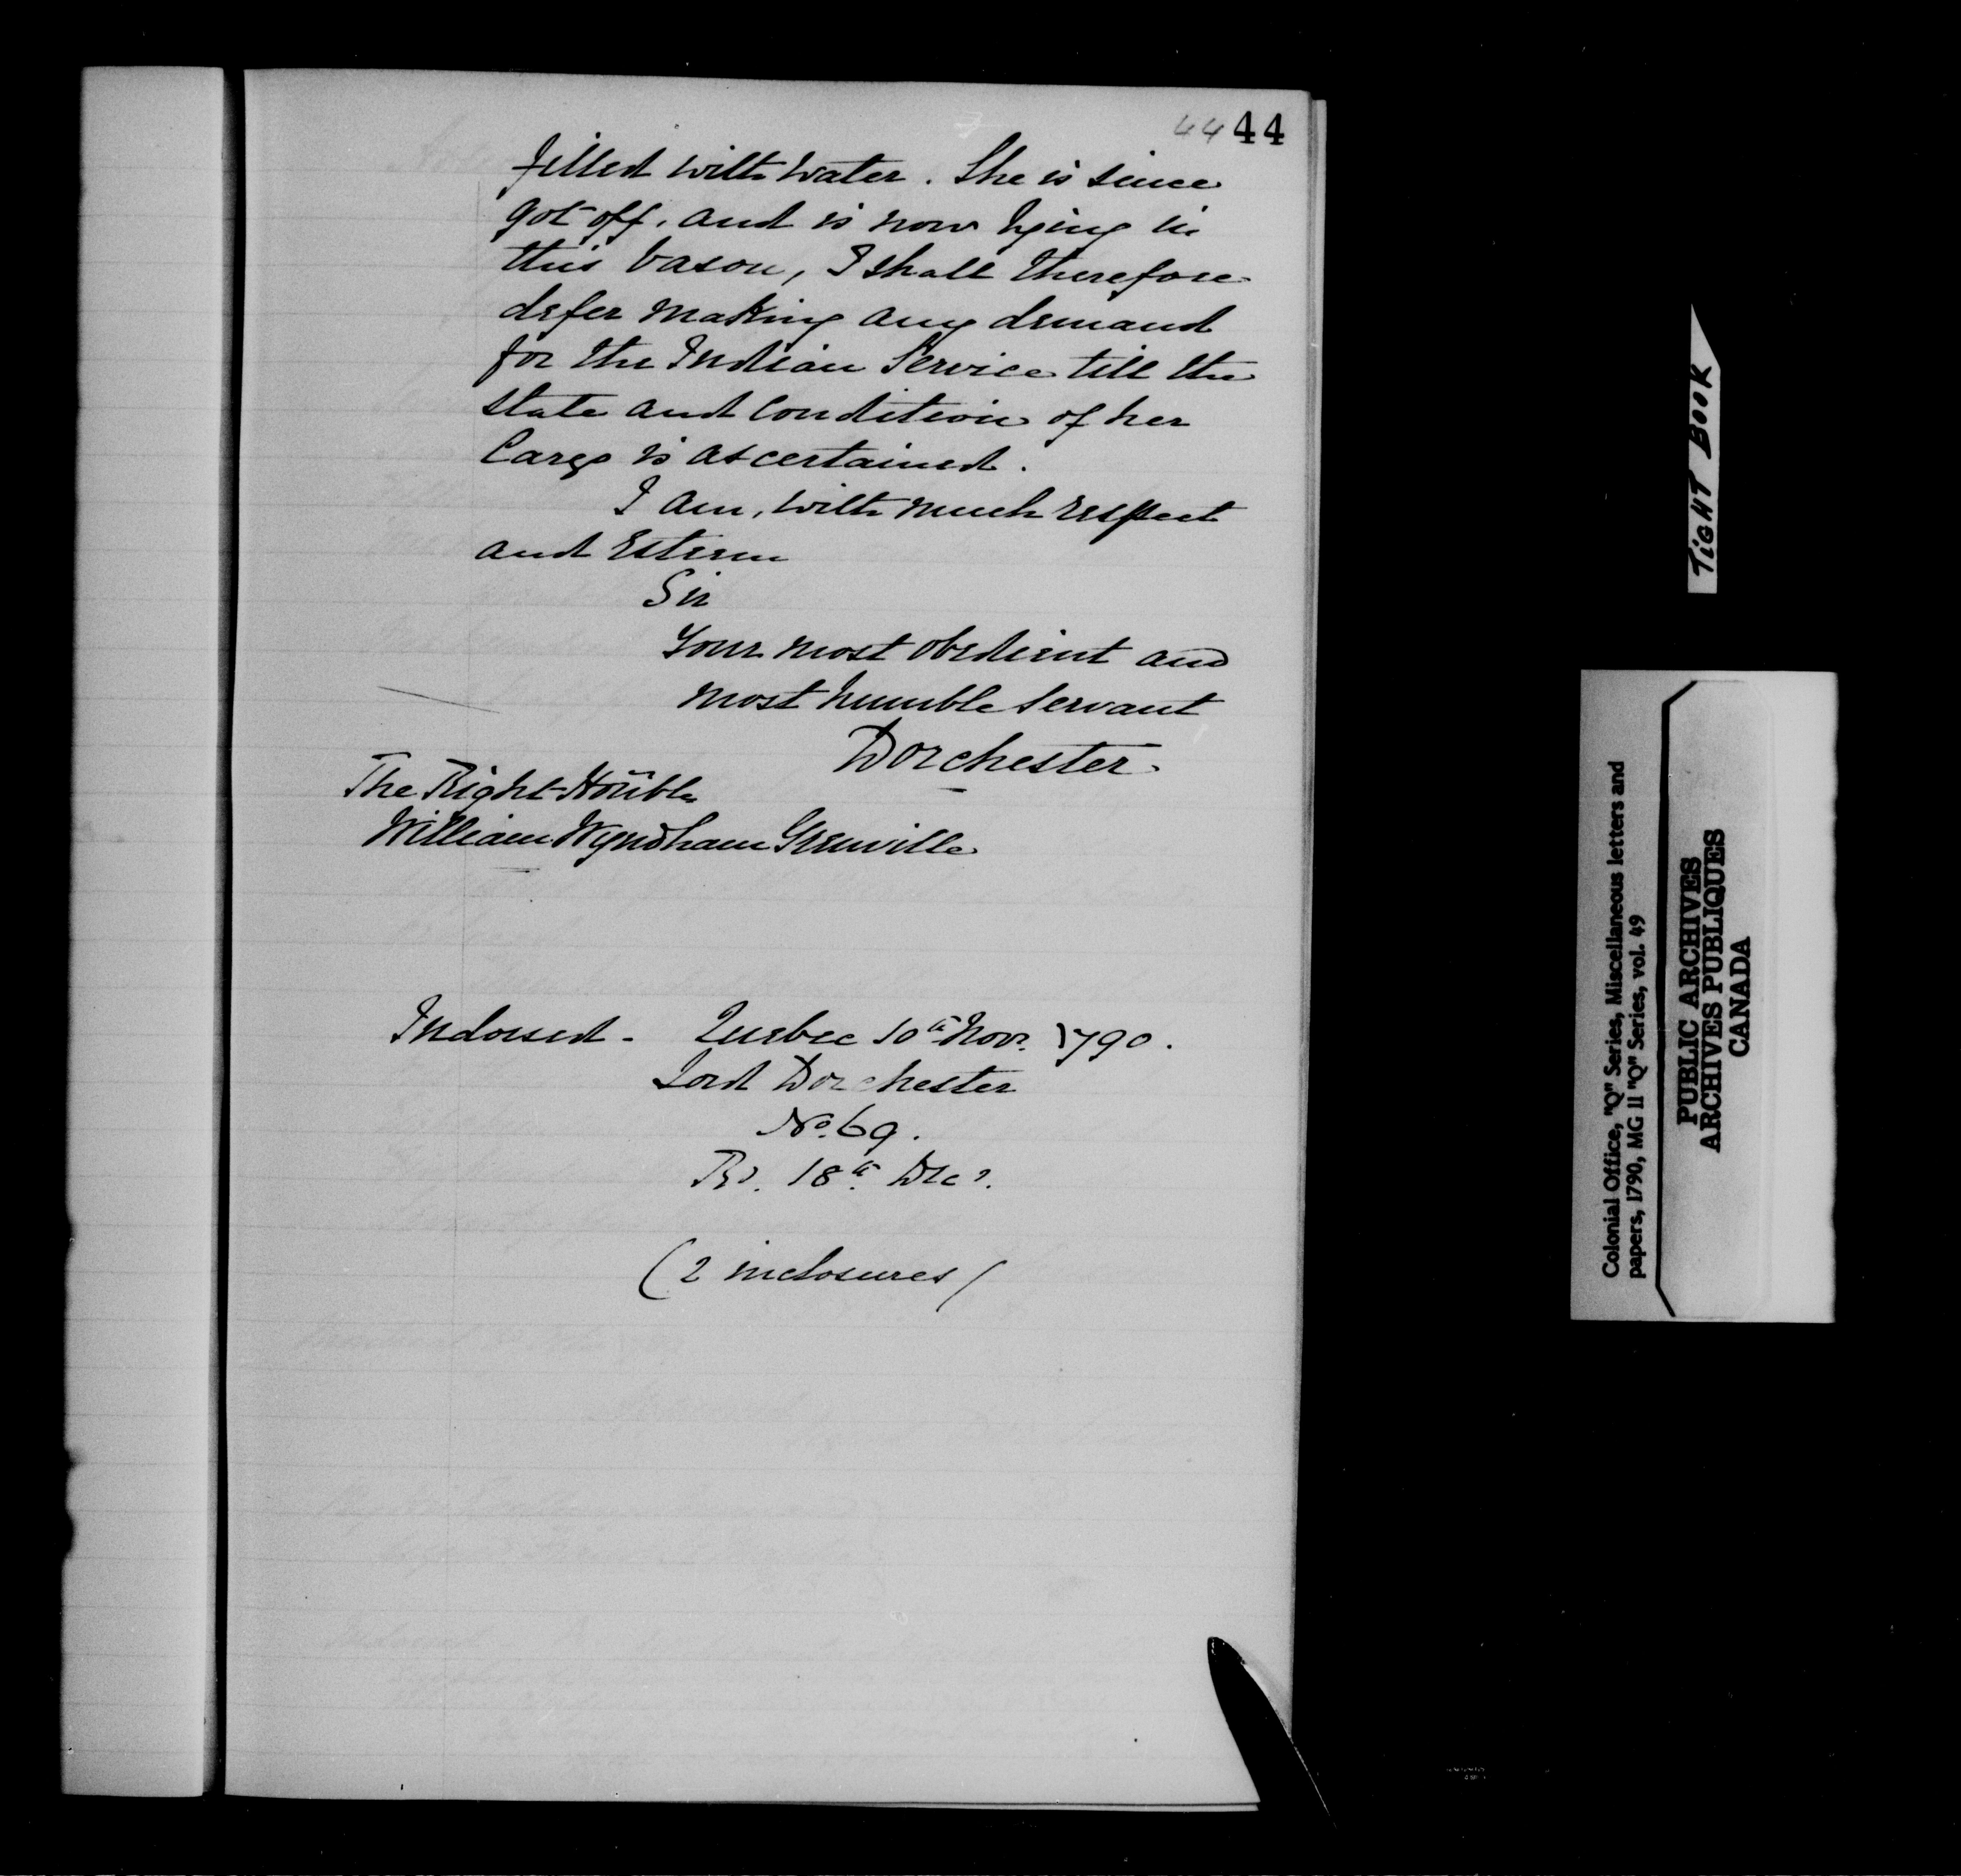 44 44
filled with water. She is since
got off, and is now lying in
this bason, I shall therefore
defer making any demand
for the Indian Service till the
state and condition of her
Cargo is ascertained.
I am, with much respect
and Esteem
Sir
Your most obedient and
most humble servant
Dorchester
The Right Honble
William Wyndham Grenville
Indorsed - Quebec 10th Novr. 1790.
Lord Dorchester
No. 69.
Rd. 18th Decr.
(2 inclosures)
TIGHT BOOK
Colonial Office, "Q" Series, Miscellaneous letters and
papers, 1790, MG 11 "Q" Series, vol. 49
PUBLIC ARCHIVES
ARCHIVES PUBLIQUES
CANADA